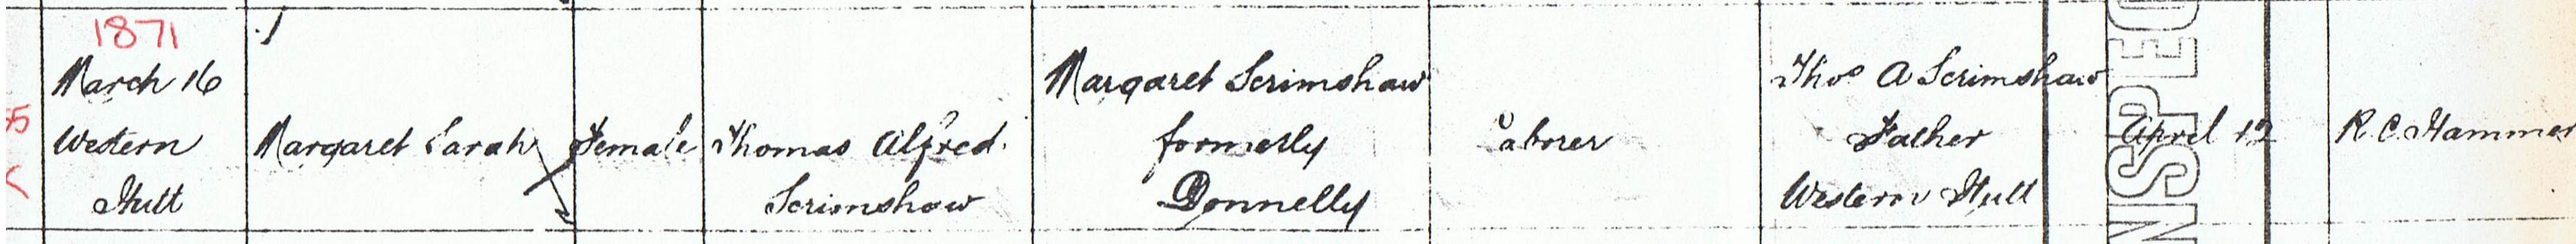 1871
March 16
Western
Hutt
Margaret Sarah
Female
Thomas Alfred
Scrimshaw
Margaret Scrimshaw
formerly
Donnelly
Laborer
Thos A Scrimshaw
Father
Western Hutt
April 12
R. C. Hammer